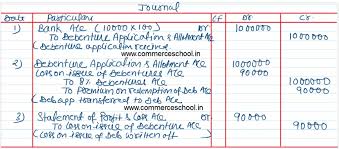 Journal
Date Particulars LF Dr. Cr.
1) Bank A/c (10000 x 100) Dr 1000000
To Debenture Application & Allotment A/c 1000000
(Debenture application received)
www.commerceschool.in
2) Debenture Application & Allotment A/c Dr 1000000
Loss on issue of Debentures A/c Dr 90000
To 8% Debentures A/c 1000000
To Premium on redemption of Deb A/c 90000
(Deb app transferred to Deb A/c
www.commerceschool.in
3) Statement of Profit & Loss A/c Dr 90000
To Loss on issue of Debenture A/c 90000
(Loss on issue of Deb written off)
www.commerceschool.in